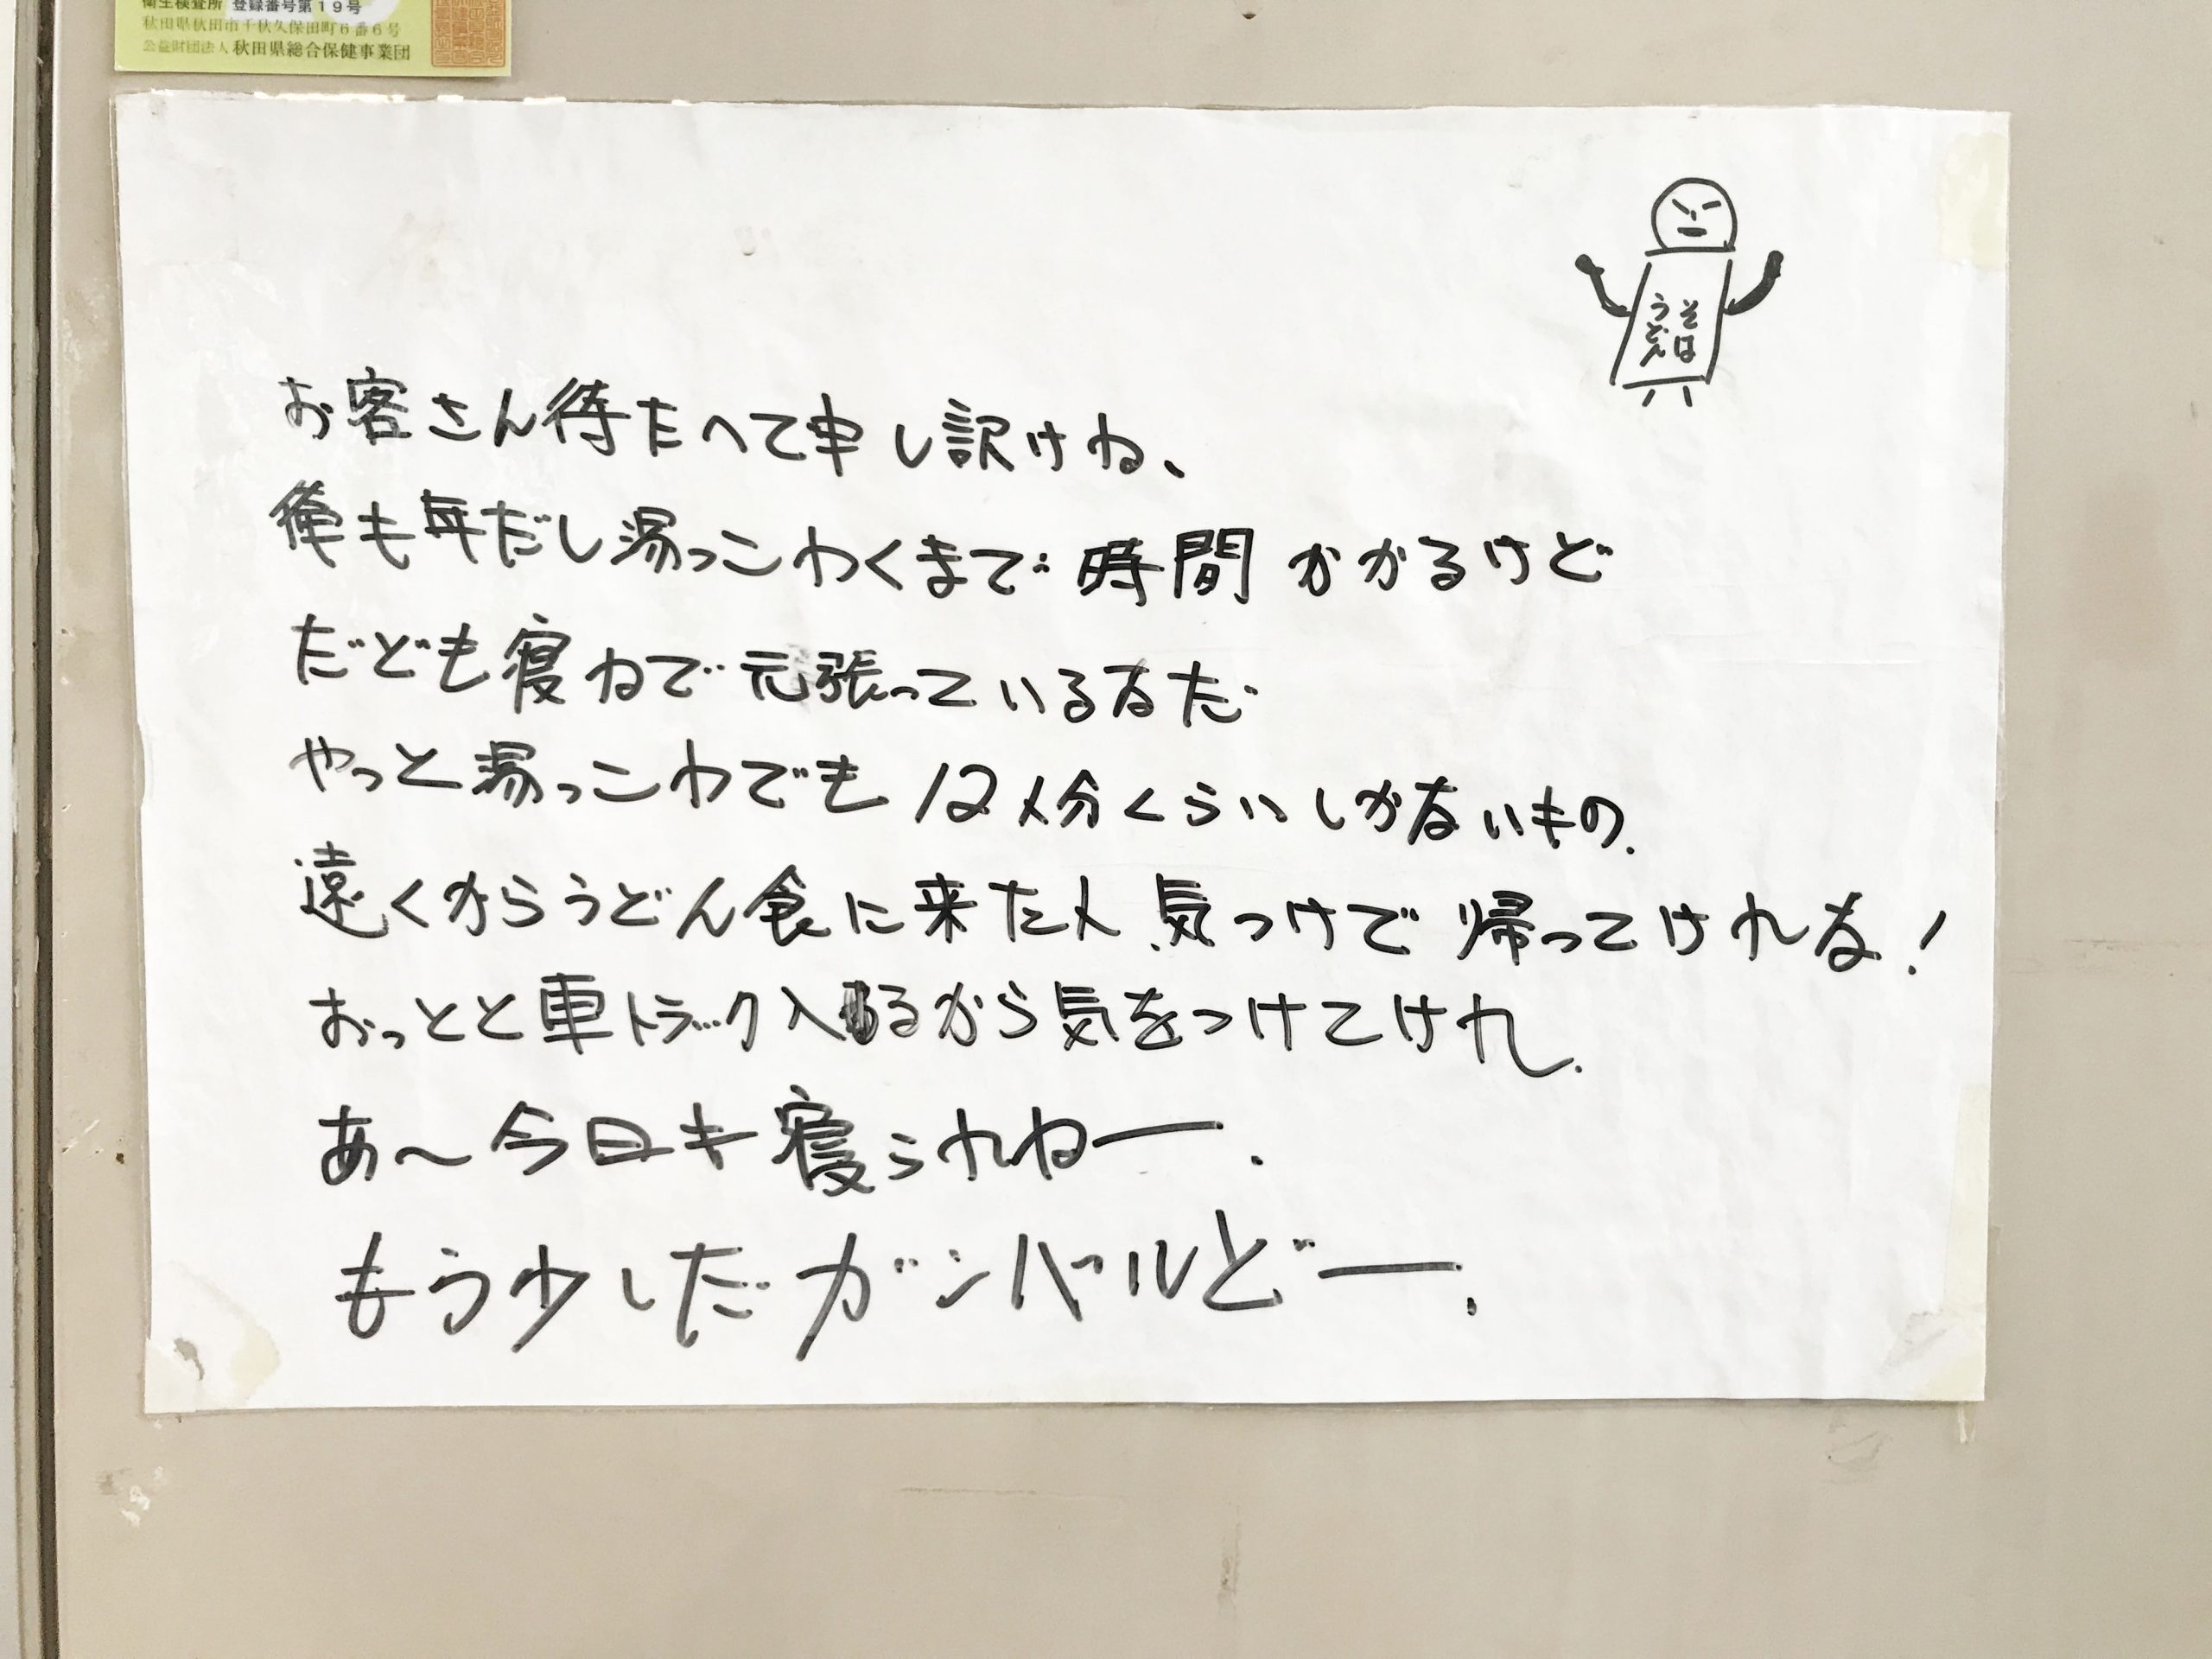 衛生検査所 登録番号第19号
秋田県秋田市千秋久保田町6番6号
公益財団法人 秋田県総合保健事業団
そば
うどん
お客さん待たへて申し訳けね、
俺も年だし湯っこわくまで時間かかるけど
だども寝ねで元張っているなだ
やっと湯っこわでも12人分くらいしかないもの.
遠くからうどん食に来た人、気つけで帰ってけれな!
おっとと車トラック入るから気をつけてけれ.
あ～今日も寝られねー.
もう少しだガンバルどー.